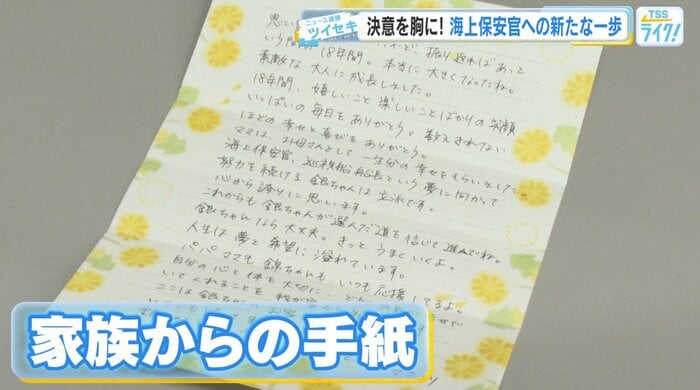 ニュース運跡
ツイセキ
決意を胸に!海上保安官への新たな一歩
TSS
ライク!
振り返ればあって
いう間の18年間。本当に大きくなったね。
素敵な大人に成長しました。
18年間、嬉しいこと楽しいことばかりの笑顔
いっぱいの毎日をありがとう。数えきれない
ほどの幸せと喜びをありがとう。
ママは、お母さんとして一生分の幸せをもらいました。
海上保安官、巡視船船長という夢に向かって
努力を続ける銀ちゃんは立派です。
心から誇りに思います。
これからも銀ちゃんが選んだ道を信じて進んでね。
銀ちゃんなら大丈夫。きっとうまくいくよ。
人生は夢と希望に溢れています。
パパママも錦ちゃんもいつも応援してるよ。
自分の心と体を大切に
いてくれることを
ここは銀ちゃんの
家族からの手紙